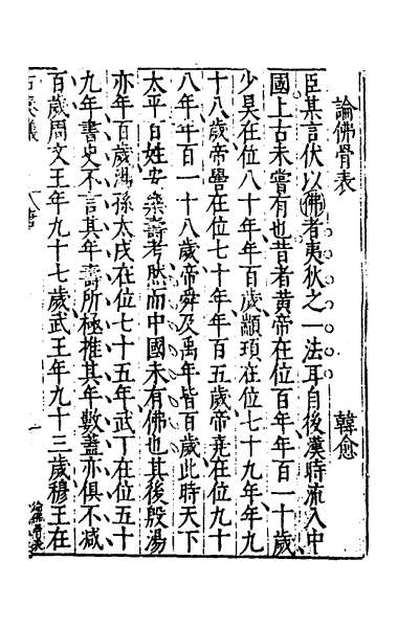 論佛骨表 韓愈
臣某言伏以佛者夷狄之一法耳自後漢時流入中
國上古未嘗有也昔者黃帝在位百年年百一十歲
少昊在位八十年年百歲顓頊在位七十九年年九
十八歲帝嚳在位七十年年百五歲帝堯在位九十
八年年百一十八歲帝舜及禹年皆百歲此時天下
太平百姓安樂壽考然而中國未有佛也其後殷湯
亦年百歲湯孫太戊在位七十五年武丁在位五十
九年書史不言其年壽所極推其年數蓋亦俱不減
百歲周文王年九十七歲武王年九十三歲穆王在
論佛骨表